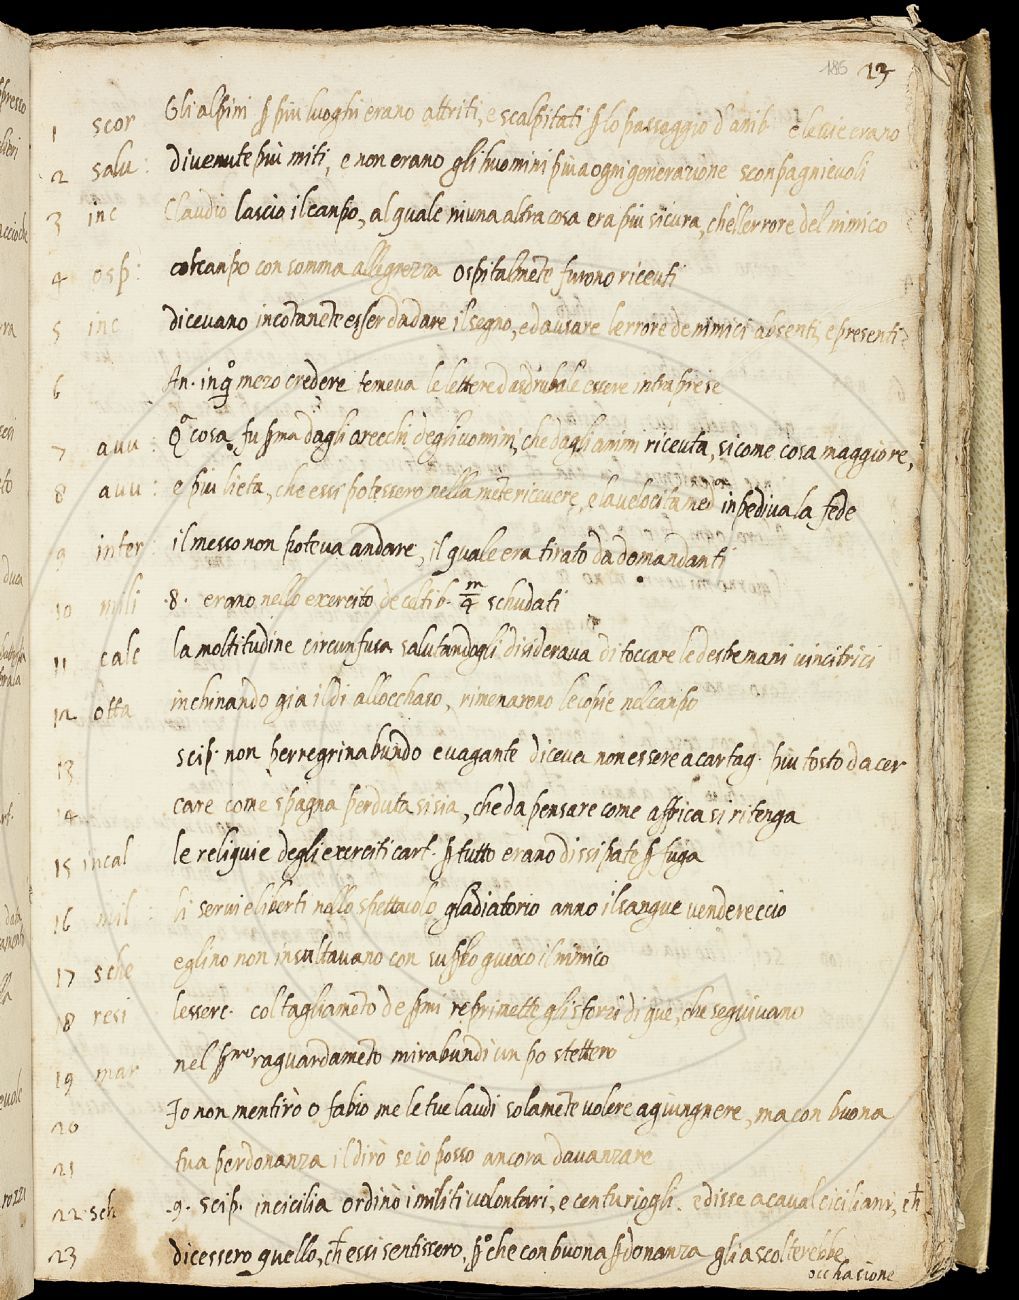 185 23
1 scor Gli alpini ꝑ piu luoghi erano attriti, e scalpitati ꝑ lo passaggio d'anib. e le vie erano
2 salu: divenute più miti, e non erano gli huomini più a ogni generazione sconpagnievoli
3 inc Claudio lascio il canpo, al quale niuna altra cosa era piu sicura, che ll errore del nimico
4 osp: con somma allegrezza ospitalmēte furono riceuti
5 inc dicevano incōtanēte esser da dare il segno, e da usare l errore de nimici absenti, e presenti
6 An. mezo credere temeva le lettere d asdrubale essere intraprese
7 auu: cosa fu pma dagli orecchi degli uomini, che dagli animi riceuta, si come cosa maggiore,
8 auu: e piu lieta, che essi potessero nella mēte ricevere, e la velocita inpediva la fede
9 inter il messo non poteva andare, il quale era tirato da domandanti
10 mili .8. erano nello exercito m/4 schudati
11 calc la moltitudine circunfusa salutandogli disiderava di toccare le destre mani vincitrici
12 otta inchinando gia il di all occhaso, rimenarono le copie nel canpo
13 scip. non perregrinabundo e vagante diceva non essere a cartag. piu tosto da cer
14 care come spagna perduta si sia, che da pensare come affrica si ritenga
15 incal le reliquie degli exerciti cart. ꝑ tutto erano dissipate ꝑ fuga
16 mil li servi e liberti nello spettacolo gladiatorio anno il sangue vendereccio
17 sche eglino non insultavano con guoco il nimico
18 resi l essere. col tagliamēto de pmi reprimette gli sforzi di que, che seguivano
19 mar nel raguardamēto mirabundi un po stettero
20 Io non mentirò o fabio me le tue laudi solamēte volere agiungnere, ma con buona
21 tua perdonanza il dirò se io posso ancora davanzare
22 sch .9. scip. in cicilia ordinò i militi volontari, e centuriogli. e disse a caval ciciliani, ch̄
23 dicessero quello, ch̄ essi sentissero, che con buona ꝑdonanza gli ascolterebbe
occhasione